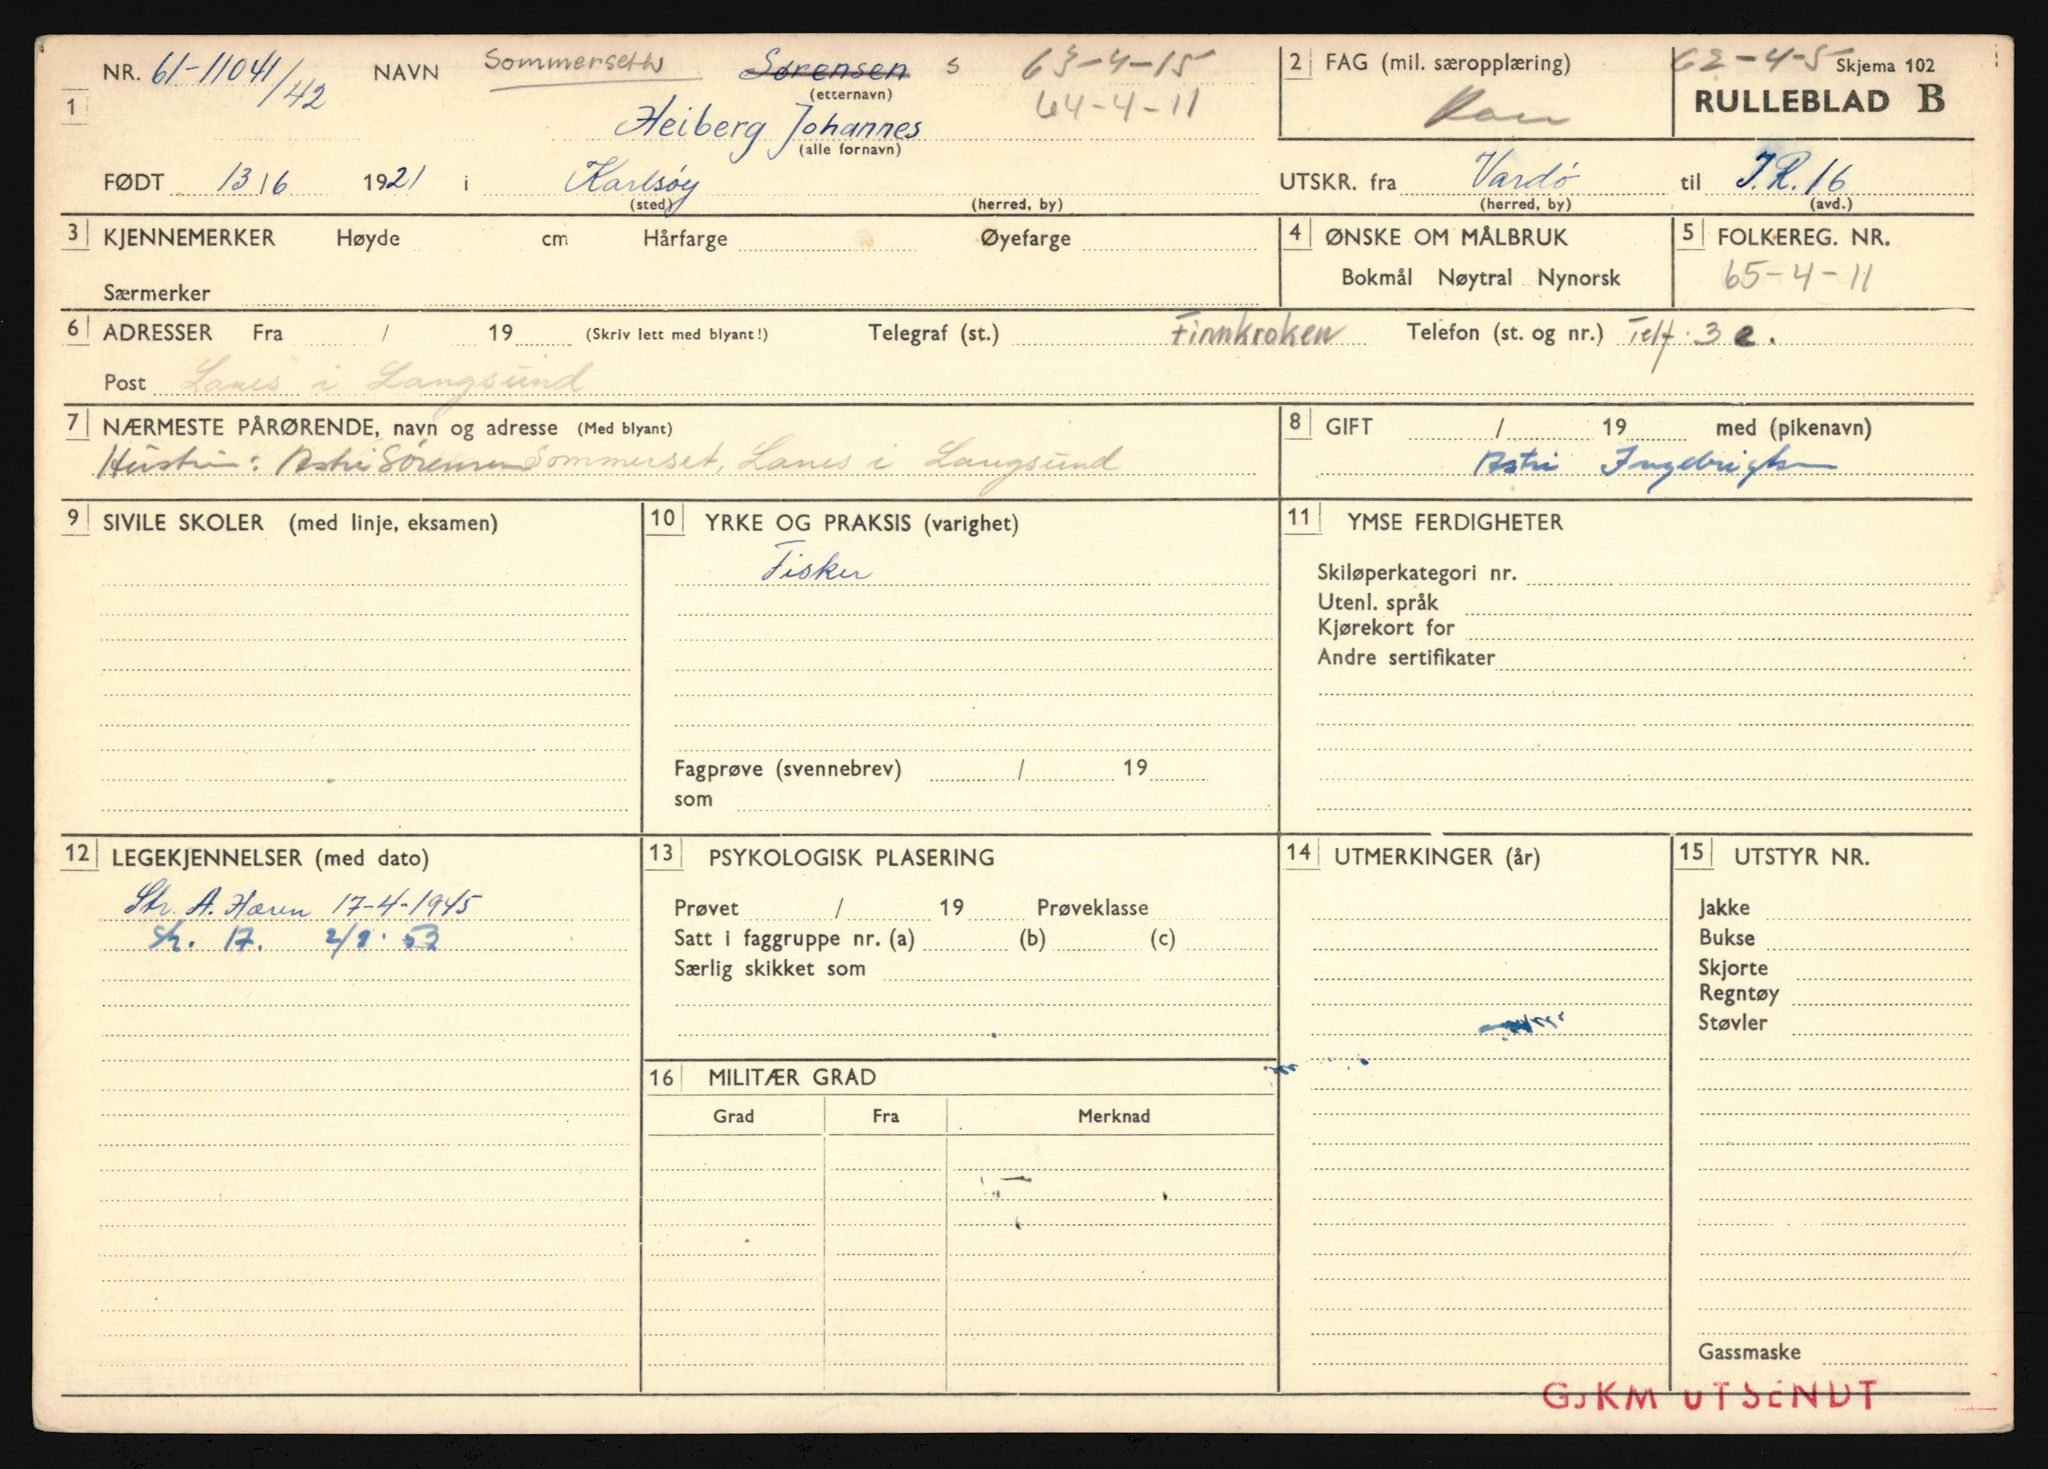 NR. 61-11041/42 NAVN Sommerseth Sørensen S 63-4-15
(etternavn) 64-4-11
1 Heiberg Johannes
(alle fornavn)
FØDT 13/6 1921 i Karlsøy
(sted) (herred, by)
2 FAG (mil. særopplæring)
62-4-5 Skjema 102
RULLEBLAD B
UTSKR. fra Vardø til I.R. 16
(herred, by) (avd.)
3 KJENNEMERKER Høyde cm Hårfarge Øyefarge
Særmerker
4 ØNSKE OM MÅLBRUK
Bokmål Nøytral Nynorsk
5 FOLKEREG. NR.
65-4-11
6 ADRESSER Fra / 19 (Skriv lett med blyant!) Telegraf (st.) Finnkroken Telefon (st. og nr.) Telf. 3 e.
Post Lanes i Langsund
7 NÆRMESTE PÅRØRENDE, navn og adresse (Med blyant)
Hustru: Astri Sørensen Sommerset, Lanes i Langsund
8 GIFT / 19 med (pikenavn)
Astri Ingebrigtsen
9 SIVILE SKOLER (med linje, eksamen)
10 YRKE OG PRAKSIS (varighet)
Fisker
Fagprøve (svennebrev) / 19
som
11 YMSE FERDIGHETER
Skiløperkategori nr.
Utenl. språk
Kjørekort for
Andre sertifikater
12 LEGEKJENNELSER (med dato)
Str. A. Hæren 17-4-1945
13 PSYKOLOGISK PLASERING
Prøvet / 19 Prøveklasse
Satt i faggruppe nr. (a) (b) (c)
Særlig skikket som
14 UTMERKINGER (år)
15 UTSTYR NR.
Jakke
Bukse
Skjorte
Regntøy
Støvler
Gassmaske
16 MILITÆR GRAD
Grad Fra Merknad
GJKM UTSENDT